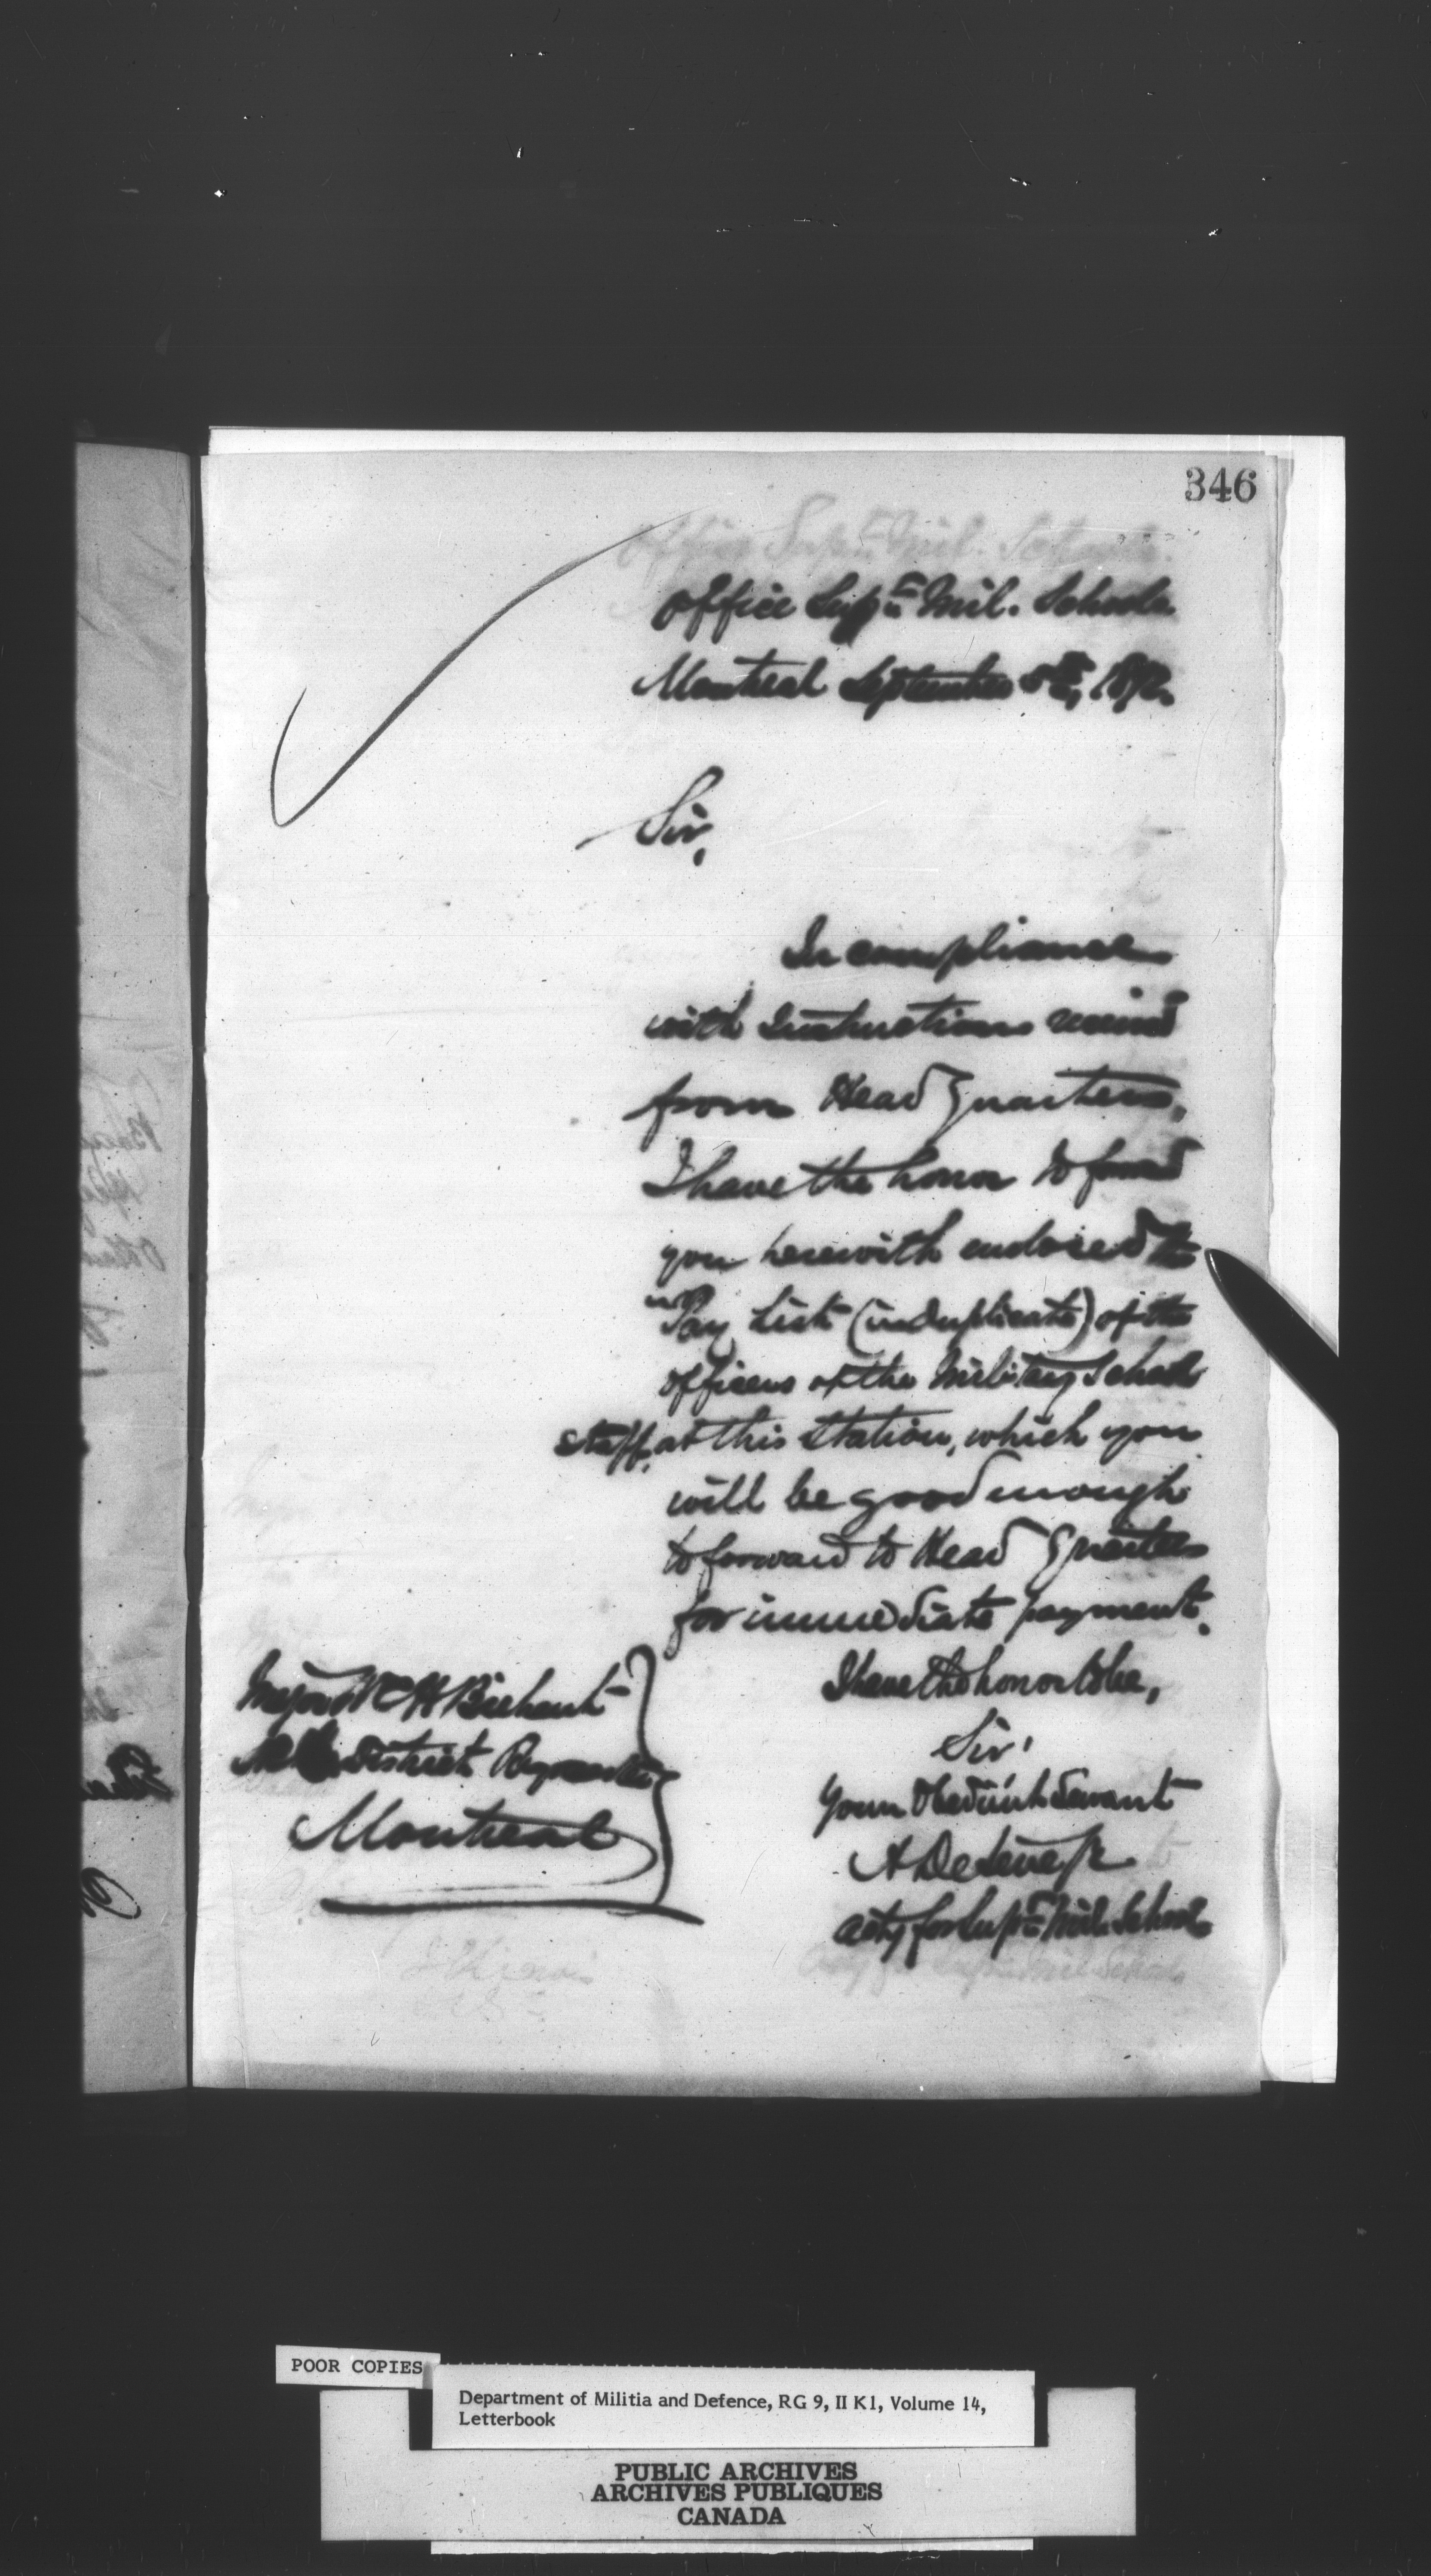 346
Office Supt. Mil. Schools.
Montreal September 5th, 1872.
Sir,
In compliance
with Instructions received
from Head Quarters,
I have the honor to forward
you herewith enclosed the
Pay List (in duplicate) of the
officers of the Military School
staff, at this station, which you
will be good enough
to forward to Head Quarters
for immediate payment.
I have the honor to be,
Sir,
Your Obedient Servant
Acty for Supt. Mil. Schools
Major
District Paymaster
Montreal
POOR COPIES
Department of Militia and Defence, RG 9, II K1, Volume 14,
Letterbook
PUBLIC ARCHIVES
ARCHIVES PUBLIQUES
CANADA